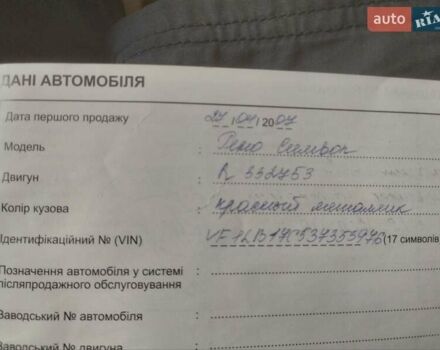 auto RIA
ДАНІ АВТОМОБІЛЯ
Дата першого продажу 27/04/2007
Модель : Рено Симбол
Двигун : R 332753
Колір кузова : красный металлик
Ідентифікаційний № (VIN) : VF1LB17C537353973 (17 символів
Позначення автомобіля у системі
післяпродажного обслуговування :
Заводський № автомобіля :
Заводський № двигуна